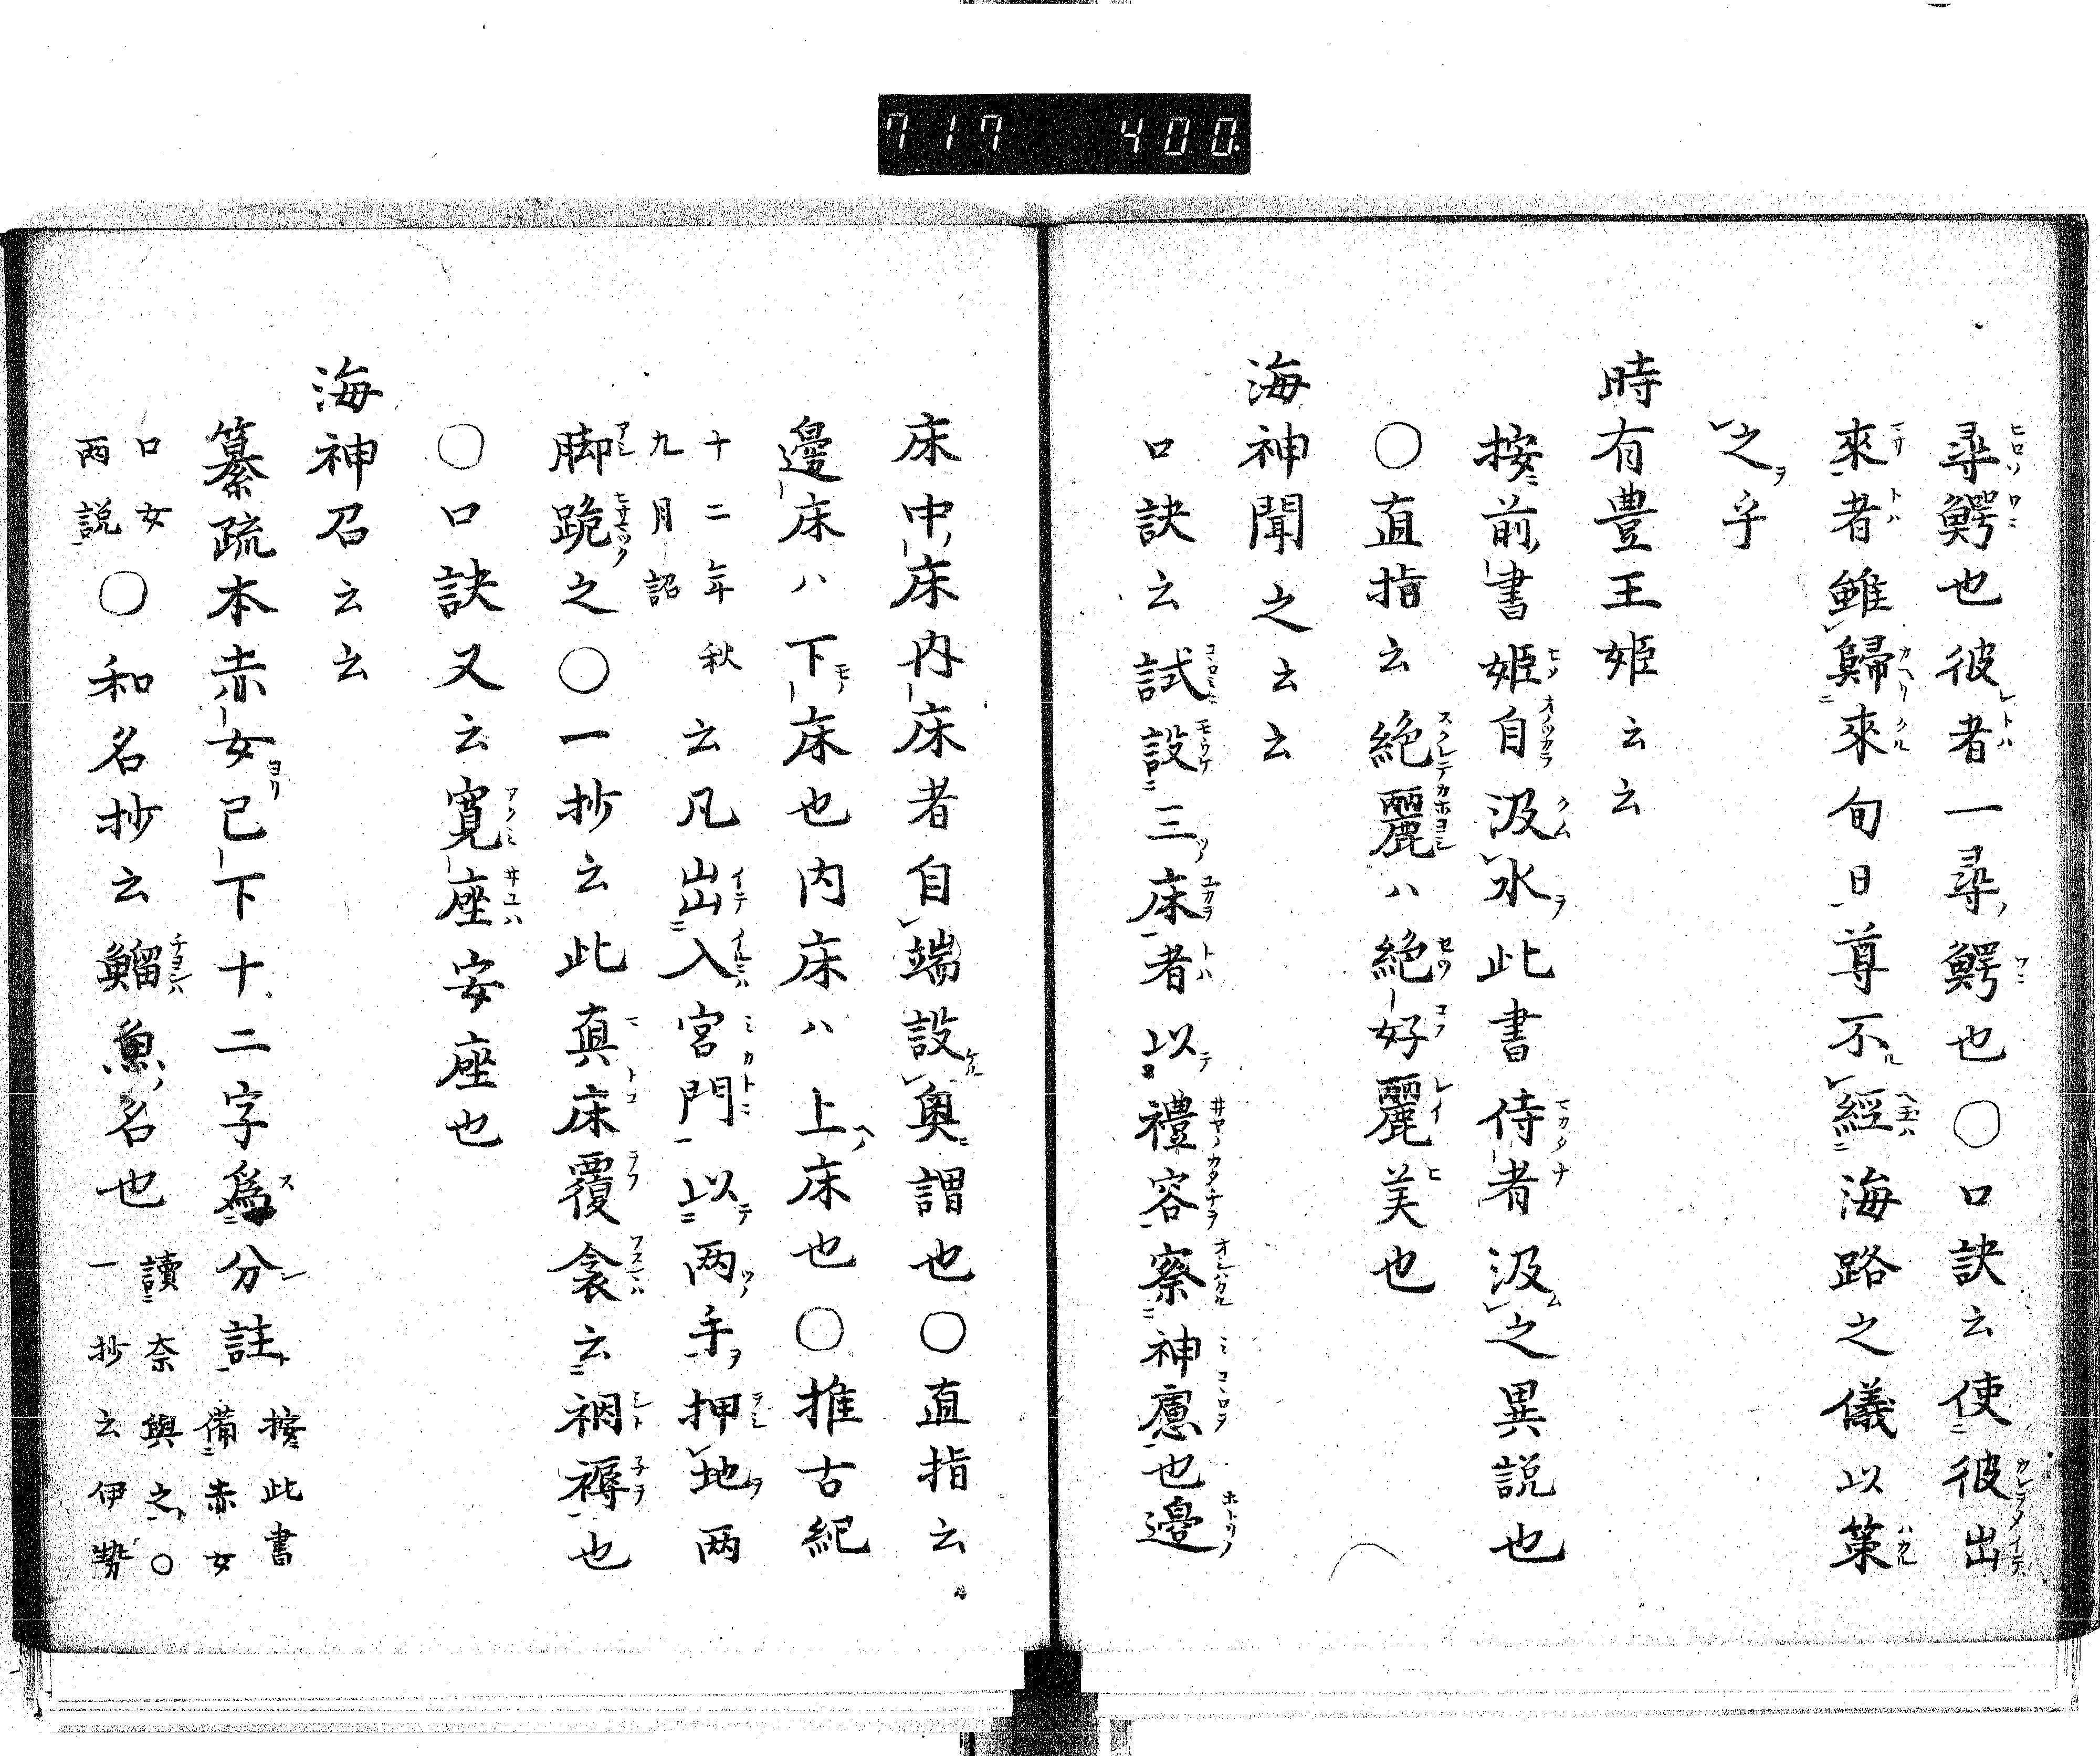 717 400.
尋鰐也彼者一尋鰐也〇口訣云使彼出
來者雖歸來旬日尊不經海路之儀以策
之乎
時有豊玉姫云云
按前書姫自汲水此書侍者汲之異説也
〇直指云絶麗ハ絶好麗美也
海神聞之云云
口訣云試設三床者以禮容察神慮也邊
床中床内床者自端設奥謂也〇直指云
邊床ハ下床也内床ハ上床也〇推古紀
十二年秋
九月詔
云凡出入宮門以两手押地两
脚跪之〇一抄云此真床覆衾云裀褥也
〇口訣又云寛座安座也
海神召云云
纂疏本赤女已下十二字為分註
按此書
備赤女
口女
兩説
〇和名抄云鰡魚名也
讀奈與之〇
一抄云伊勢